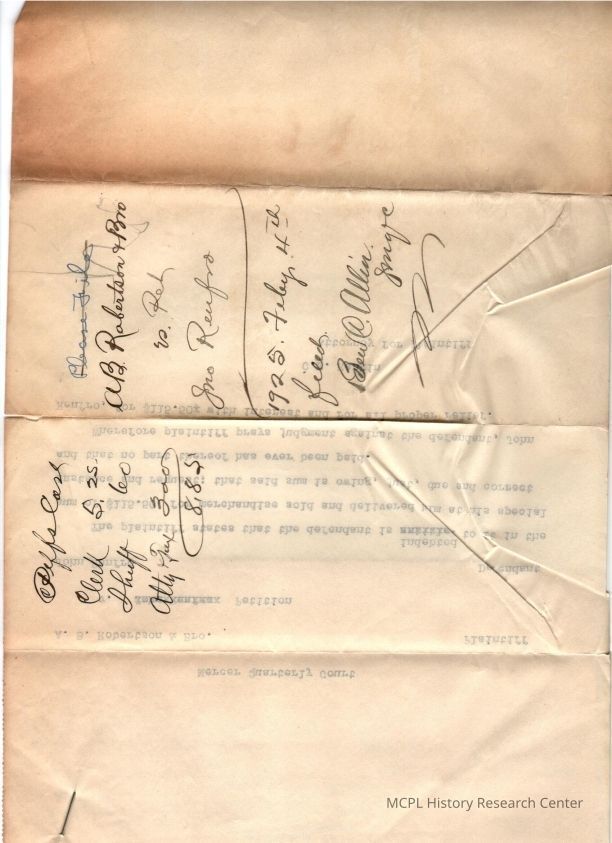 Please File
A.B. Robertson & Bro
vs. Pet
Jno Renfro
1925. Feby. 4th
filed.
Ben C. Allin.
Judge
Plffs Cost
Clerk 5.25
Shff 60
Atty Fee 3.00
8.85
Mercer Quarterly Court
A. B. Robertson & Bro. Plaintiff
Petition
John Renfro Defendant
indebted
The plaintiff states that the defendant is to it in the
sum of $115.50 for merchandise sold and delivered him at his special
instance and request; that said sum is owing, just, due and correct
and that no part thereof has ever been paid.
Wherefore plaintiff prays judgment against the defendant, John
Renfro, for $115.50, with interest and for all proper relief.
Attorney for Plaintiff
MCPL History Research Center